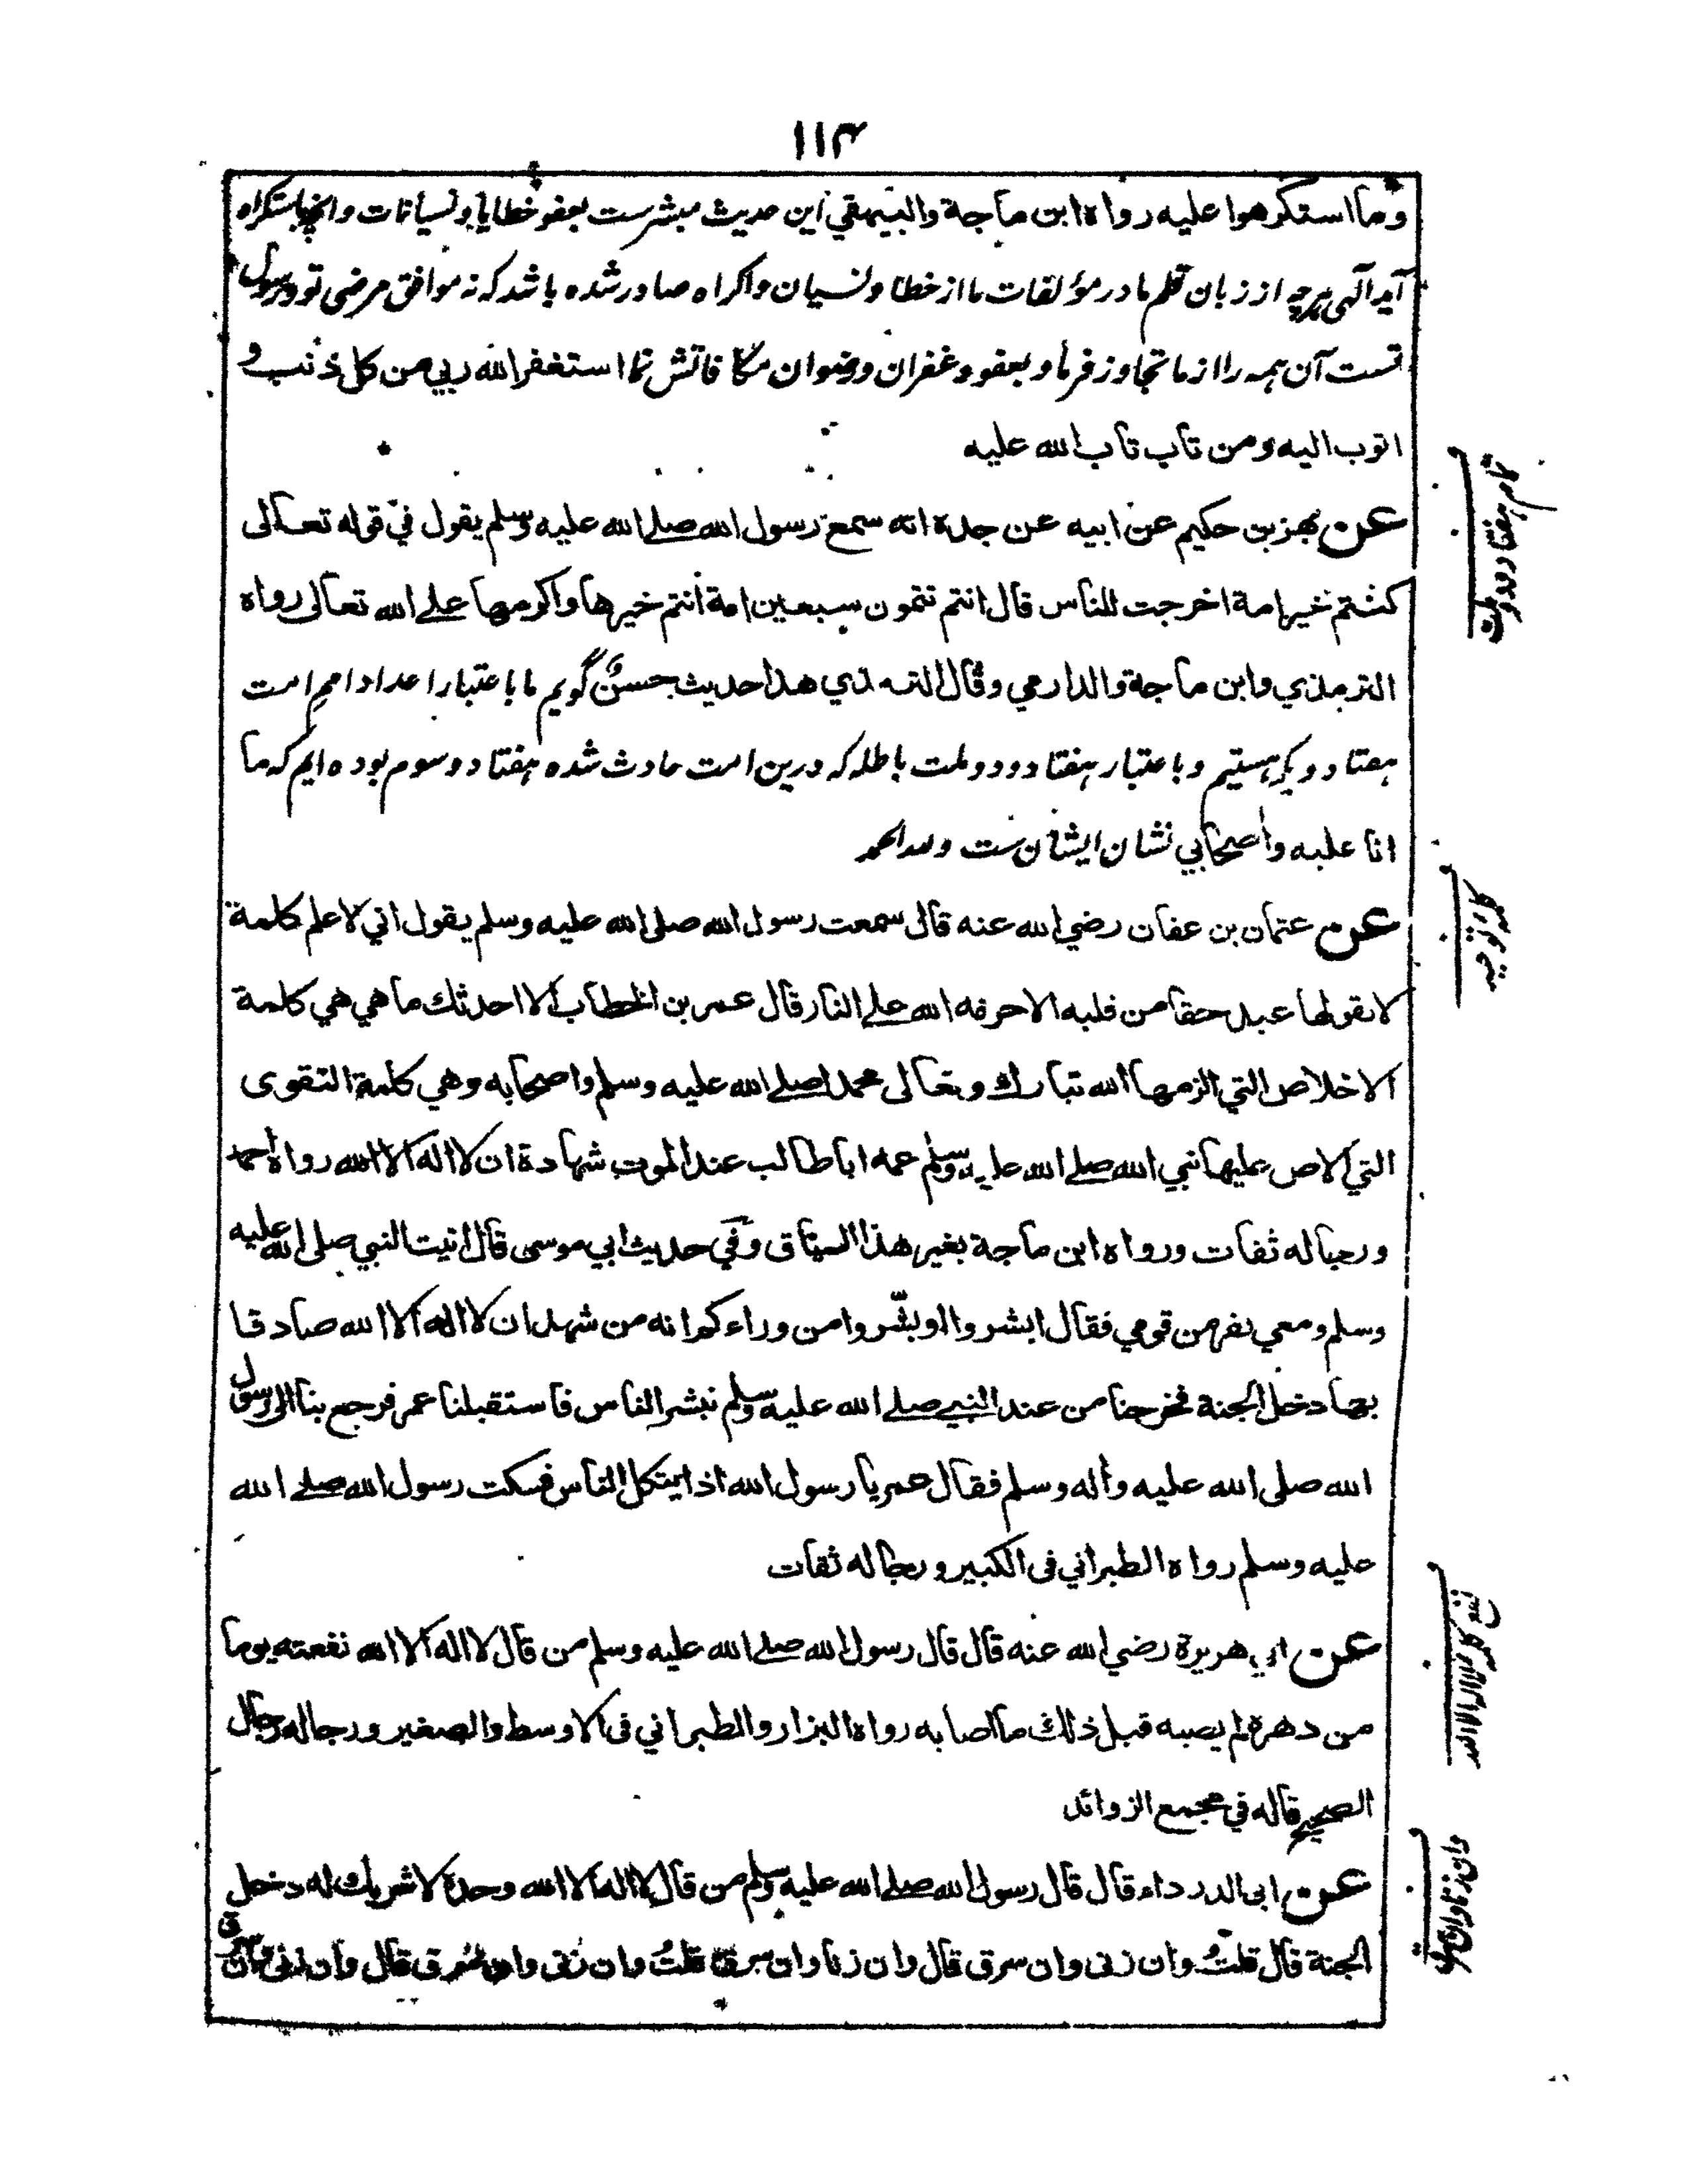 ۱۱۴
وما استكرهوا عليه رواه ابن ماجة والبيهقي این حدیث مبشرست بعفو خطایا و نسیانات و انچه باستکراه
آید آلهی هرچه از زبان قلم ما در مؤلفات ما از خطا و نسیان و اکراه صادر شده باشد که نه موافق مرضی تو و رسول
تست آن همه را از ما تجاوز فرما و بعفو و غفران و رضوان مکافاتش نما استغفر الله ربي من كل ذنب و
اتوب اليه ومن تاب تاب الله عليه
عن بهز بن حكيم عن ابيه عن جدة انه سمع رسول الله صلے الله عليه وسلم يقول في قوله تعالى
كنتم خير امة اخرجت للناس قال انتم تتمون سبعين امة انتم خيرها واكرمها علے الله تعالى رواه
الترمذي وابن ماجة والدارمي وقال الترمذي هذا حديث حسن گویم ما باعتبار اعداد امم امت
هفتاد و یکم هستیم و باعتبار هفتاد و دو ملت باطله که درین امت حادث شده هفتاد و سوم بوده ایم که ما
انا عليه واصحابي نشان ایشان ست و لله الحمد
عن عثمان بن عفان رضي الله عنه قال سمعت رسول الله صلى الله عليه وسلم يقول اني لاعلم كلمة
لا يقولها عبد حقا من قلبه الا حرمه الله علے النار قال عمر بن الخطاب الا احدثك ما هي هي كلمة
الاخلاص التي الزمها الله تبارك وتعالى محمدا صلے الله عليه وسلم واصحابه وهي كلمة التقوى
التي الاص عليها نبي الله صلے الله عليه وسلم عمه ابا طالب عند الموت شهادة ان لا اله الا الله رواه احمد
ورجاله ثقات ورواه ابن ماجة بغير هذا السياق وفي حديث ابي موسى قال اتيت النبي صلى الله عليه
وسلم ومعي نفر من قومي فقال ابشروا وبشروا من وراءكم انه من شهد ان لا اله الا الله صادقا
بها دخل الجنة فخرجنا من عند النبي صلے الله عليه وسلم نبشر الناس فاستقبلنا عمر فرجع بنا الى رسول
الله صلى الله عليه وأله وسلم فقال عمر يا رسول الله اذا يتكل الناس فسكت رسول الله صلے الله
عليه وسلم رواه الطبراني فى الكبير ورجاله ثقات
عن ابي هريرة رضي الله عنه قال قال رسول الله صلے الله عليه وسلم من قال لا اله الا الله نفعته يوما
من دهرة لم يصبه قبل ذلك ما اصابه رواه البزار والطبراني فى الاوسط والصغير ورجاله رجال
الصحيح قاله في مجمع الزوائد
عن ابى الدرداء قال قال رسول الله صلے الله عليه وسلم من قال لا اله الا الله وحدة لا شريك له دخل
الجنة قال قلت وان زنى وان سرق قال وان زنا وان سرق قلت وان زنى وان سرق قال وان زنى وان سرق
هفتاد و دو ملت
کلمه توحید
نفع کلمه لا اله الا الله
وان زنا وان سرق